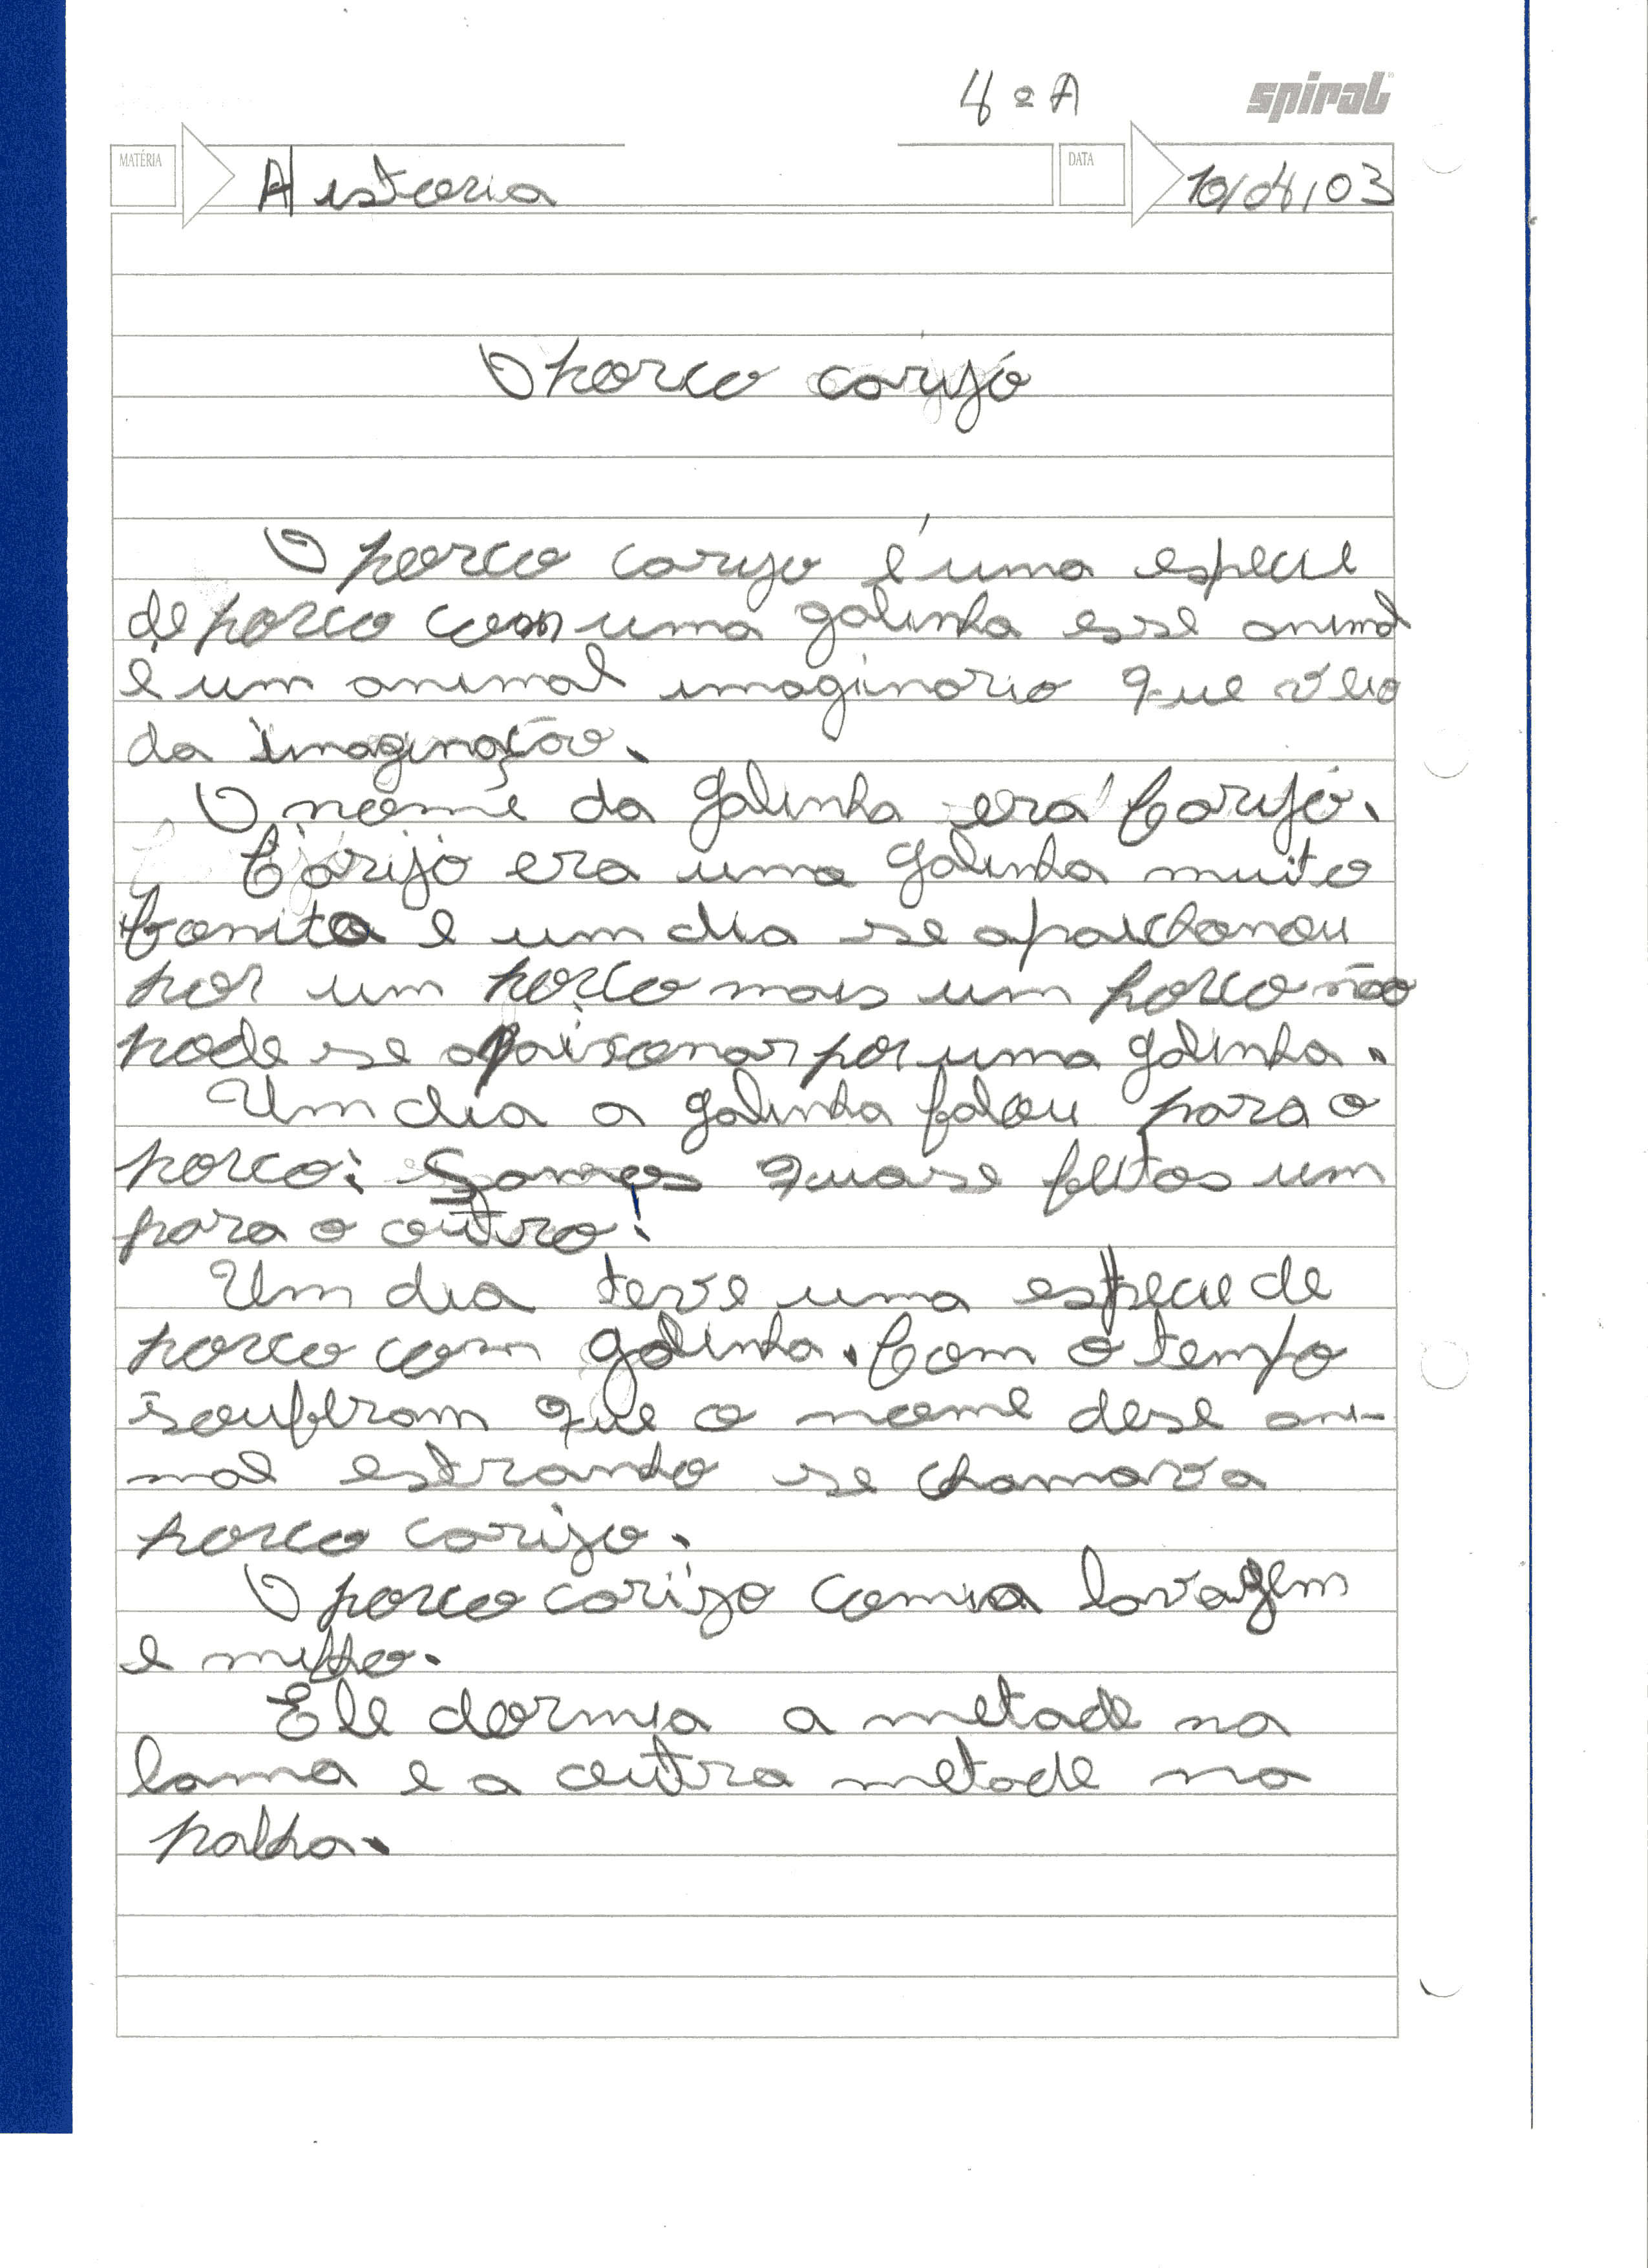 4ª A
spiral
MATÉRIA
Historia
DATA
10/04/03
O porco carijó
O porco carijo é uma especie
de porco com uma galinha esse animal
e um animal imaginario que veio
da imaginação.
O nome da galinha era Carijó.
Carijó era uma galinha muito
bonita e um dia se apaichonou
por um porco mais um porco não
pode se apaixonar por uma galinha.
Um dia a galinha falou para o
porco: Somos quase feitos um
para o outro!
Um dia teve uma especie de
porco com galinha. Com o tempo
souberam que o nome dese ani-
mal estranho se chamava
porco carijo.
O porco carijo comia lavagem
e milho.
Ele dormia a metade na
lama e a outra metade na
palha.